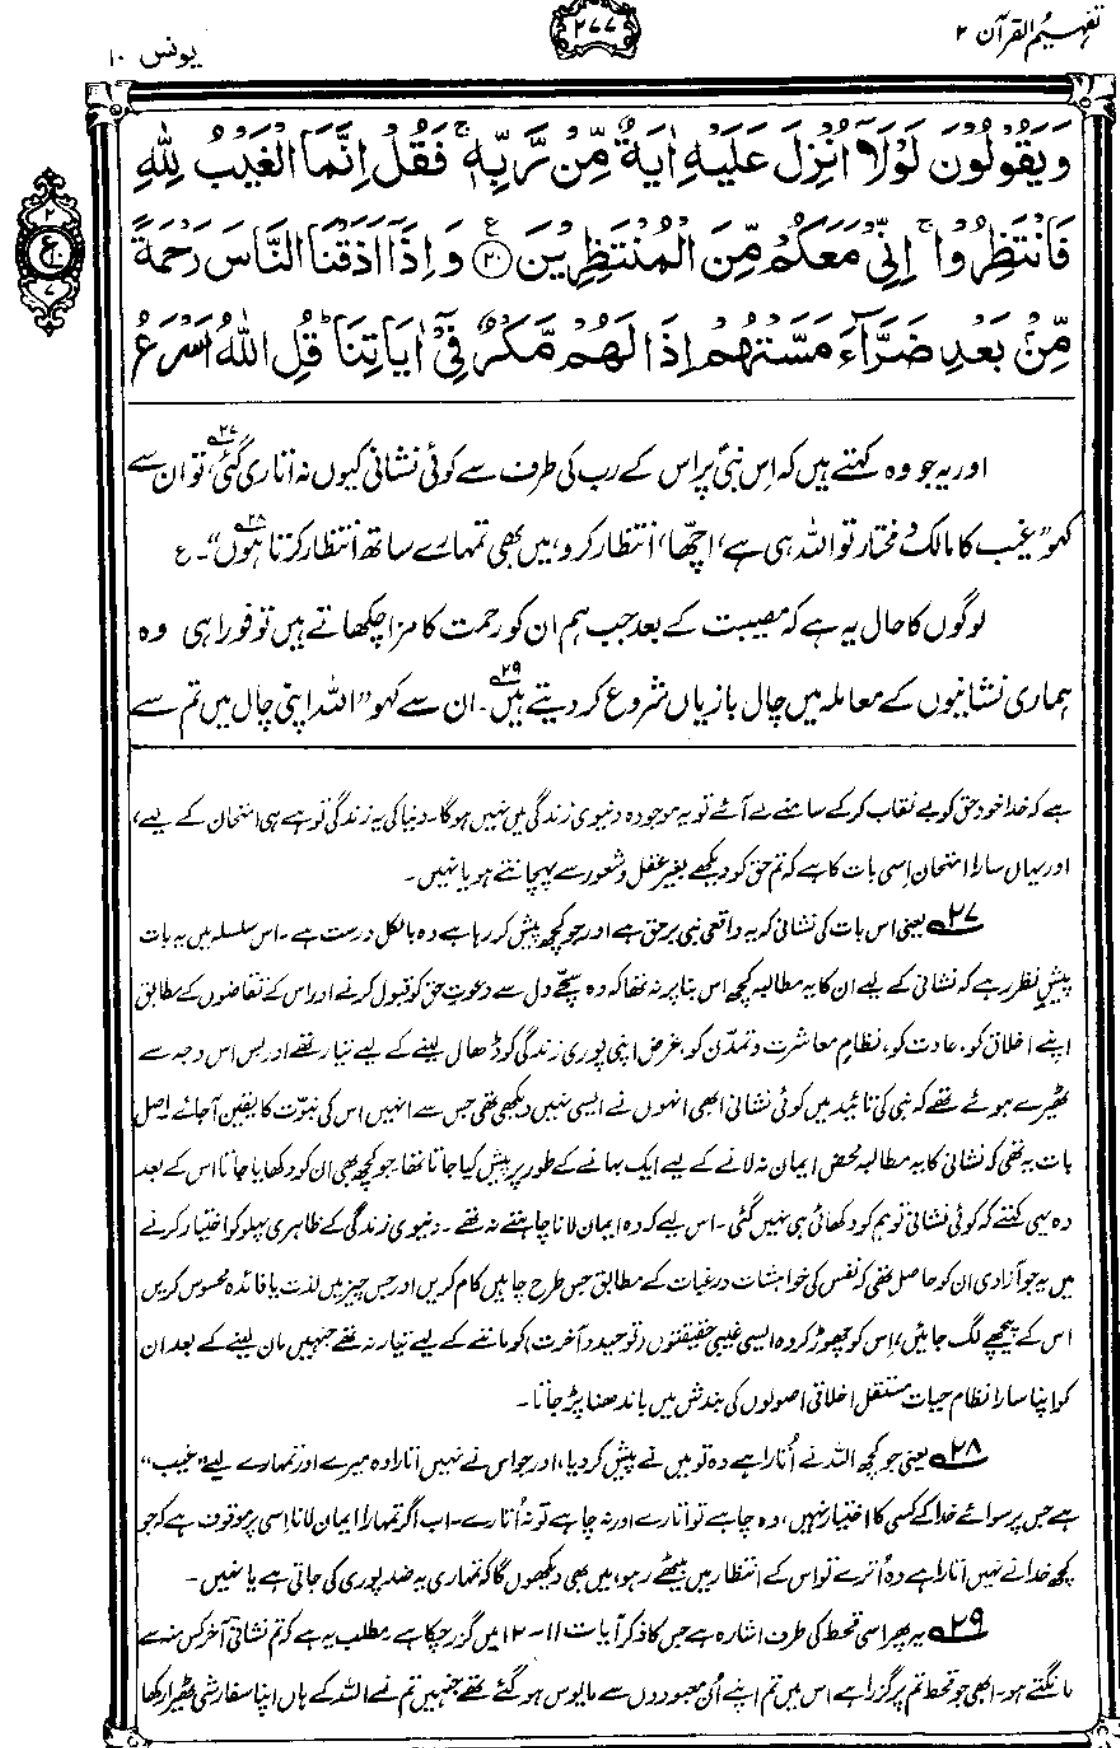 تفہیم القرآن ۲
۲۷۷
یونس ۱۰
وَيَقُوۡلُوۡنَ لَوۡلَاۤ اُنۡزِلَ عَلَيۡهِ اٰيَةٌ مِّنۡ رَّبِّهٖ‌ۚ فَقُلۡ اِنَّمَا الۡغَيۡبُ لِلّٰهِ
فَانۡتَظِرُوۡا‌ۚ اِنِّىۡ مَعَكُمۡ مِّنَ الۡمُنۡتَظِرِيۡنَ ۞۲۰ وَاِذَاۤ اَذَقۡنَا النَّاسَ رَحۡمَةً
مِّنۡۢ بَعۡدِ ضَرَّآءَ مَسَّتۡهُمۡ اِذَا لَهُمۡ مَّكۡرٌ فِىۡۤ اٰيَاتِنَا‌ؕ قُلِ اللّٰهُ اَسۡرَعُ
۲
ع
۱۰
۷
اور یہ جو وہ کہتے ہیں کہ اِس نبیؐ پر اس کے رب کی طرف سے کوئی نشانی کیوں نہ اتاری گئی۲۷، تو ان سے
کہو ”غیب کا مالک و مختار تو اللہ ہی ہے، اچھّا، انتظار کرو، میں بھی تمہارے ساتھ انتظار کرتا ہوں۲۸“۔ ع
لوگوں کا حال یہ ہے کہ مصیبت کے بعد جب ہم ان کو رحمت کا مزا چکھاتے ہیں تو فوراً ہی وہ
ہماری نشانیوں کے معاملہ میں چال بازیاں شروع کر دیتے ہیں۲۹۔ ان سے کہو ”اللہ اپنی چال میں تم سے
ہے کہ خدا خود حق کو بے نقاب کر کے سامنے لے آئے تو یہ موجودہ دنیوی زندگی میں نہیں ہوگا۔ دنیا کی یہ زندگی تو ہے ہی امتحان کے لیے،
اور یہاں سارا امتحان اِسی بات کا ہے کہ تم حق کو دیکھے بغیر عقل و شعور سے پہچانتے ہو یا نہیں۔
۲۷ یعنی اس بات کی نشانی کہ یہ واقعی نبی برحق ہے اور جو کچھ پیش کر رہا ہے وہ بالکل درست ہے۔ اس سلسلہ میں یہ بات
پیشِ نظر رہے کہ نشانی کے لیے ان کا یہ مطالبہ کچھ اس بنا پر نہ تھا کہ وہ سچّے دل سے دعوتِ حق کو قبول کرنے اور اس کے تقاضوں کے مطابق
اپنے اخلاق کو، عادت کو، نظامِ معاشرت و تمدّن کو، غرض اپنی پوری زندگی کو ڈھال لینے کے لیے تیار تھے اور بس اس وجہ سے
ٹھیرے ہوئے تھے کہ نبی کی تائید میں کوئی نشانی ابھی انہوں نے ایسی نہیں دیکھی تھی جس سے انہیں اس کی نبوّت کا یقین آجائے۔ اصل
بات یہ تھی کہ نشانی کا یہ مطالبہ محض ایمان نہ لانے کے لیے ایک بہانے کے طور پر پیش کیا جاتا تھا۔ جو کچھ بھی ان کو دکھایا جاتا اس کے بعد
وہ یہی کہتے کہ کوئی نشانی تو ہم کو دکھائی ہی نہیں گئی۔ اس لیے کہ وہ ایمان لانا چاہتے نہ تھے۔ دنیوی زندگی کے ظاہری پہلو کو اختیار کرنے
میں یہ جو آزادی ان کو حاصل تھی کہ نفس کی خواہشات و رغبات کے مطابق جس طرح چاہیں کام کریں اور جس چیز میں لذت یا فائدہ محسوس کریں
اس کے پیچھے لگ جائیں، اِس کو چھوڑ کر وہ ایسی غیبی حقیقتوں (توحید و آخرت) کو ماننے کے لیے تیار نہ تھے جنہیں مان لینے کے بعد ان
کو اپنا سارا نظام حیات مستقل اخلاقی اصولوں کی بندش میں باندھنا پڑ جاتا۔
۲۸ یعنی جو کچھ اللہ نے اُتارا ہے وہ تو میں نے پیش کر دیا، اور جو اس نے نہیں اتارا وہ میرے اور تمہارے لیے ”غیب“
ہے جس پر سوائے خدا کے کسی کا اختیار نہیں، وہ چاہے تو اتارے اور نہ چاہے تو نہ اُتارے۔ اب اگر تمہارا ایمان لانا اِسی پر موقوف ہے کہ جو
کچھ خدا نے نہیں اتارا ہے وہ اُترے تو اس کے انتظار میں بیٹھے رہو، میں بھی دیکھوں گا کہ تمہاری یہ ضد پوری کی جاتی ہے یا نہیں۔
۲۹ یہ پھر اسی قحط کی طرف اشارہ ہے جس کا ذکر آیات ۱۱-۱۲ میں گزر چکا ہے۔ مطلب یہ ہے کہ تم نشانی آخر کس منہ سے
مانگتے ہو۔ ابھی جو قحط تم پر گزرا ہے اس میں تم اپنے اُن معبودوں سے مایوس ہو گئے تھے جنہیں تم نے اللہ کے ہاں اپنا سفارشی ٹھیرا رکھا